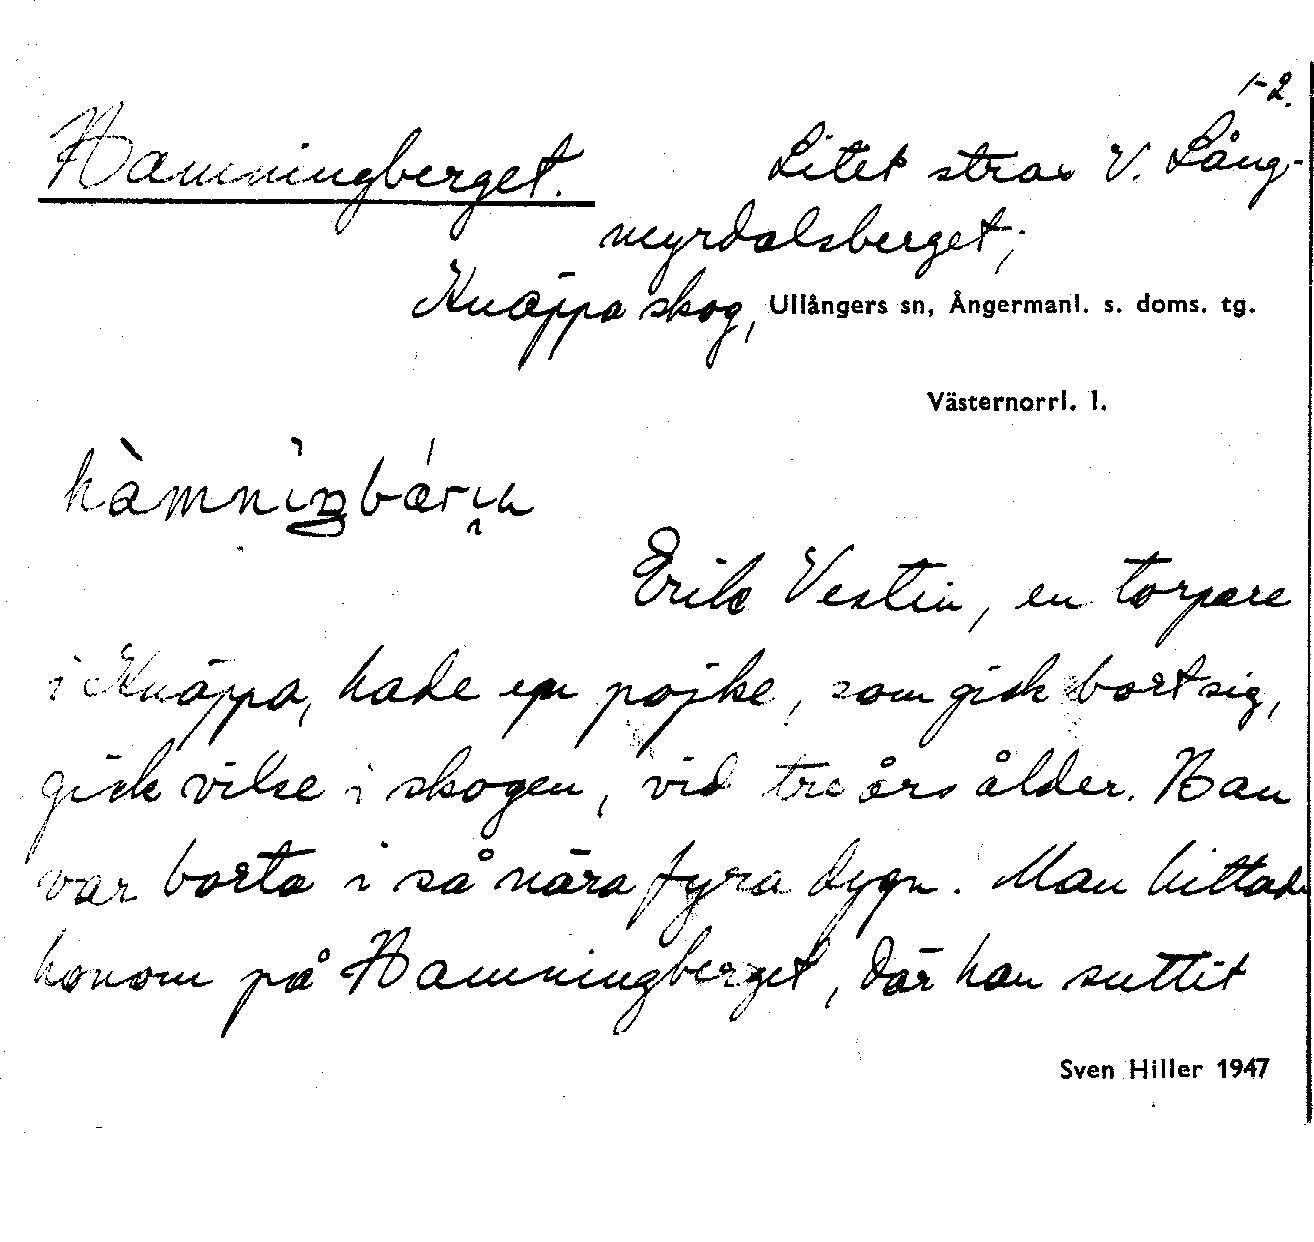 1-2.
Hamningberget. Litet strax V. Lång-
myrdalsberget;
Knäppa skog, Ullångers sn, Ångermanl. s. doms. tg.
Västernorrl. l.
Erik Vestin, en torpare
i Knäppa, hade en pojke, som gick bort sig,
gick vilse i skogen, vid tre års ålder. Han
var borta i så nära fyra dygn. Man hittade
honom på Hamningberget, där han suttit
Sven Hiller 1947